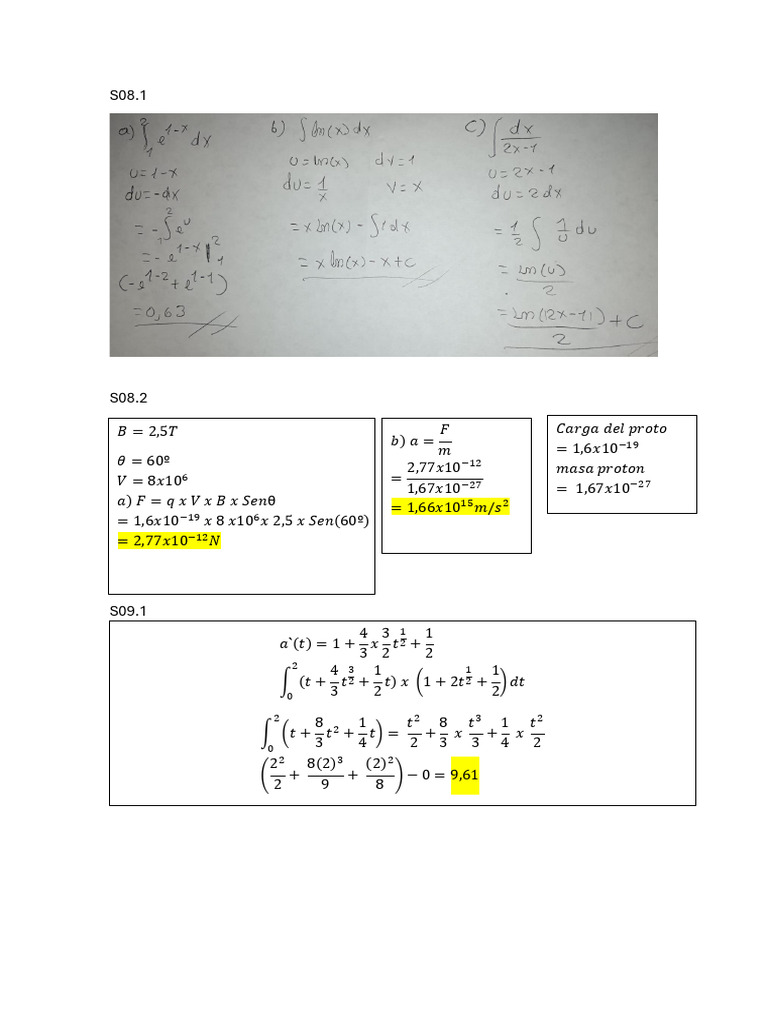 S08.1
a) ∫₁² e^(1-x) dx
u=1-x
du=-dx
= - ∫₁² e^u
= - e^(1-x) |₁²
(-e^(1-2) + e^(1-1))
=0,63
b) ∫ ln(x) dx
u=ln(x) dv=1
du=1/x v=x
= x ln(x) - ∫1dx
= x ln(x) - x+c
c) ∫ dx/(2x-1)
u=2x-1
du=2dx
= 1/2 ∫ 1/u du
= ln(u)/2
= ln(|2x-1|)/2 + C
S08.2
B = 2,5T
θ = 60º
V = 8x10⁶
a) F = q x V x B x Senθ
= 1,6x10⁻¹⁹ x 8 x10⁶x 2,5 x Sen(60º)
= 2,77x10⁻¹²N
b) a = F/m
= 2,77x10⁻¹²/1,67x10⁻²⁷
= 1,66x10¹⁵m/s²
Carga del proto
= 1,6x10⁻¹⁹
masa proton
= 1,67x10⁻²⁷
S09.1
a`(t) = 1 + 4/3 x 3/2 t^(1/2) + 1/2
∫₀² (t + 4/3 t^(3/2) + 1/2 t) x (1 + 2t^(1/2) + 1/2) dt
∫₀² (t + 8/3 t² + 1/4 t) = t²/2 + 8/3 x t³/3 + 1/4 x t²/2
(2²/2 + 8(2)³/9 + (2)²/8) − 0 = 9,61